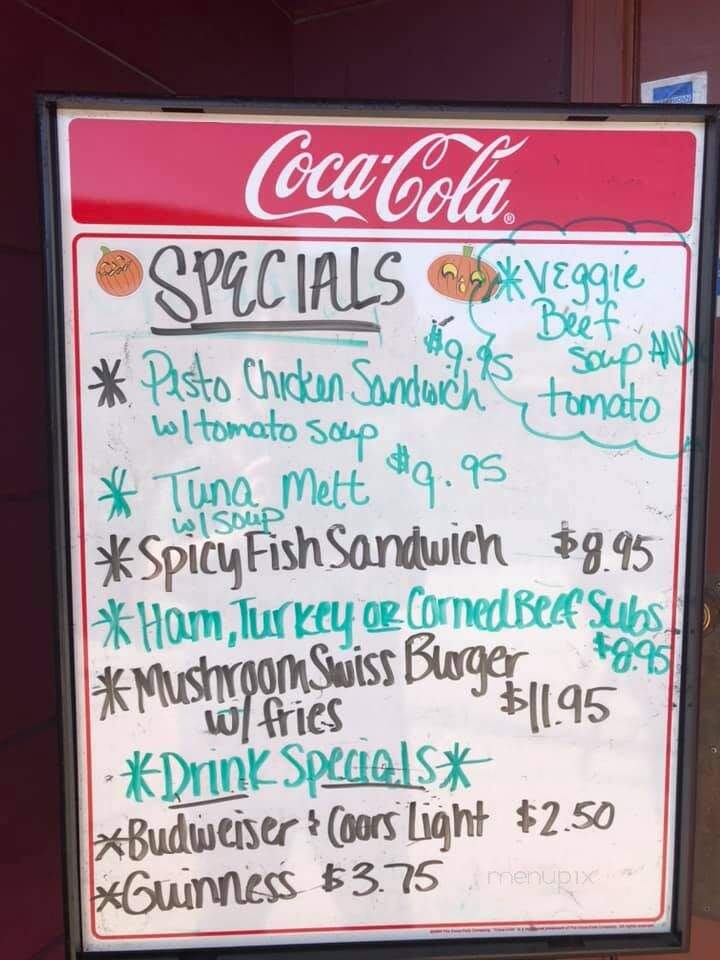 Coca-Cola®
SPECIALS
*Veggie
Beef
Soup AND
tomato
* Pesto Chicken Sandwich $9.95
w/ tomato soup
* Tuna Melt $9.95
w/ soup
* Spicy Fish Sandwich $8.95
* Ham, Turkey or Corned Beef Subs
$8.95
* Mushroom Swiss Burger
w/ fries $11.95
*Drink Specials*
*Budweiser & Coors Light $2.50
*Guinness $3.75
menupix